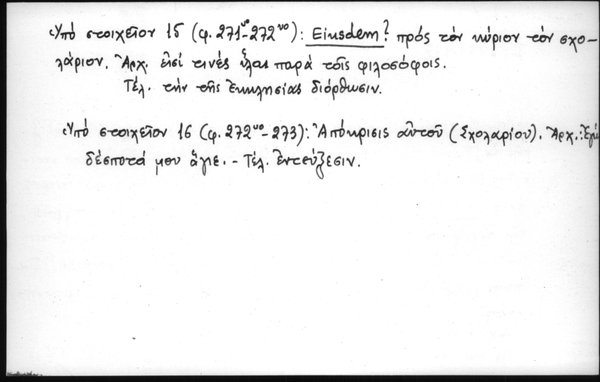 Ὑπό στοιχεῖον 15 (φ. 271ᵛᵒ-272ᵛᵒ): Eiusdem? πρός τόν κύριον τόν σχο-
λάριον. Ἀρχ. εἰσί τινές ὗλαι παρά τοῖς φιλοσόφοις.
Τέλ. τήν τῆς ἐκκλησίας διόρθωσιν.
Ὑπό στοιχεῖον 16 (φ. 272ᵛᵒ-273): Ἀπόκρισις αὐτοῦ (Σχολαρίου). Ἀρχ.: Ἐγώ
δέσποτά μου ἅγιε. - Τέλ. ἐντεύξεσιν.